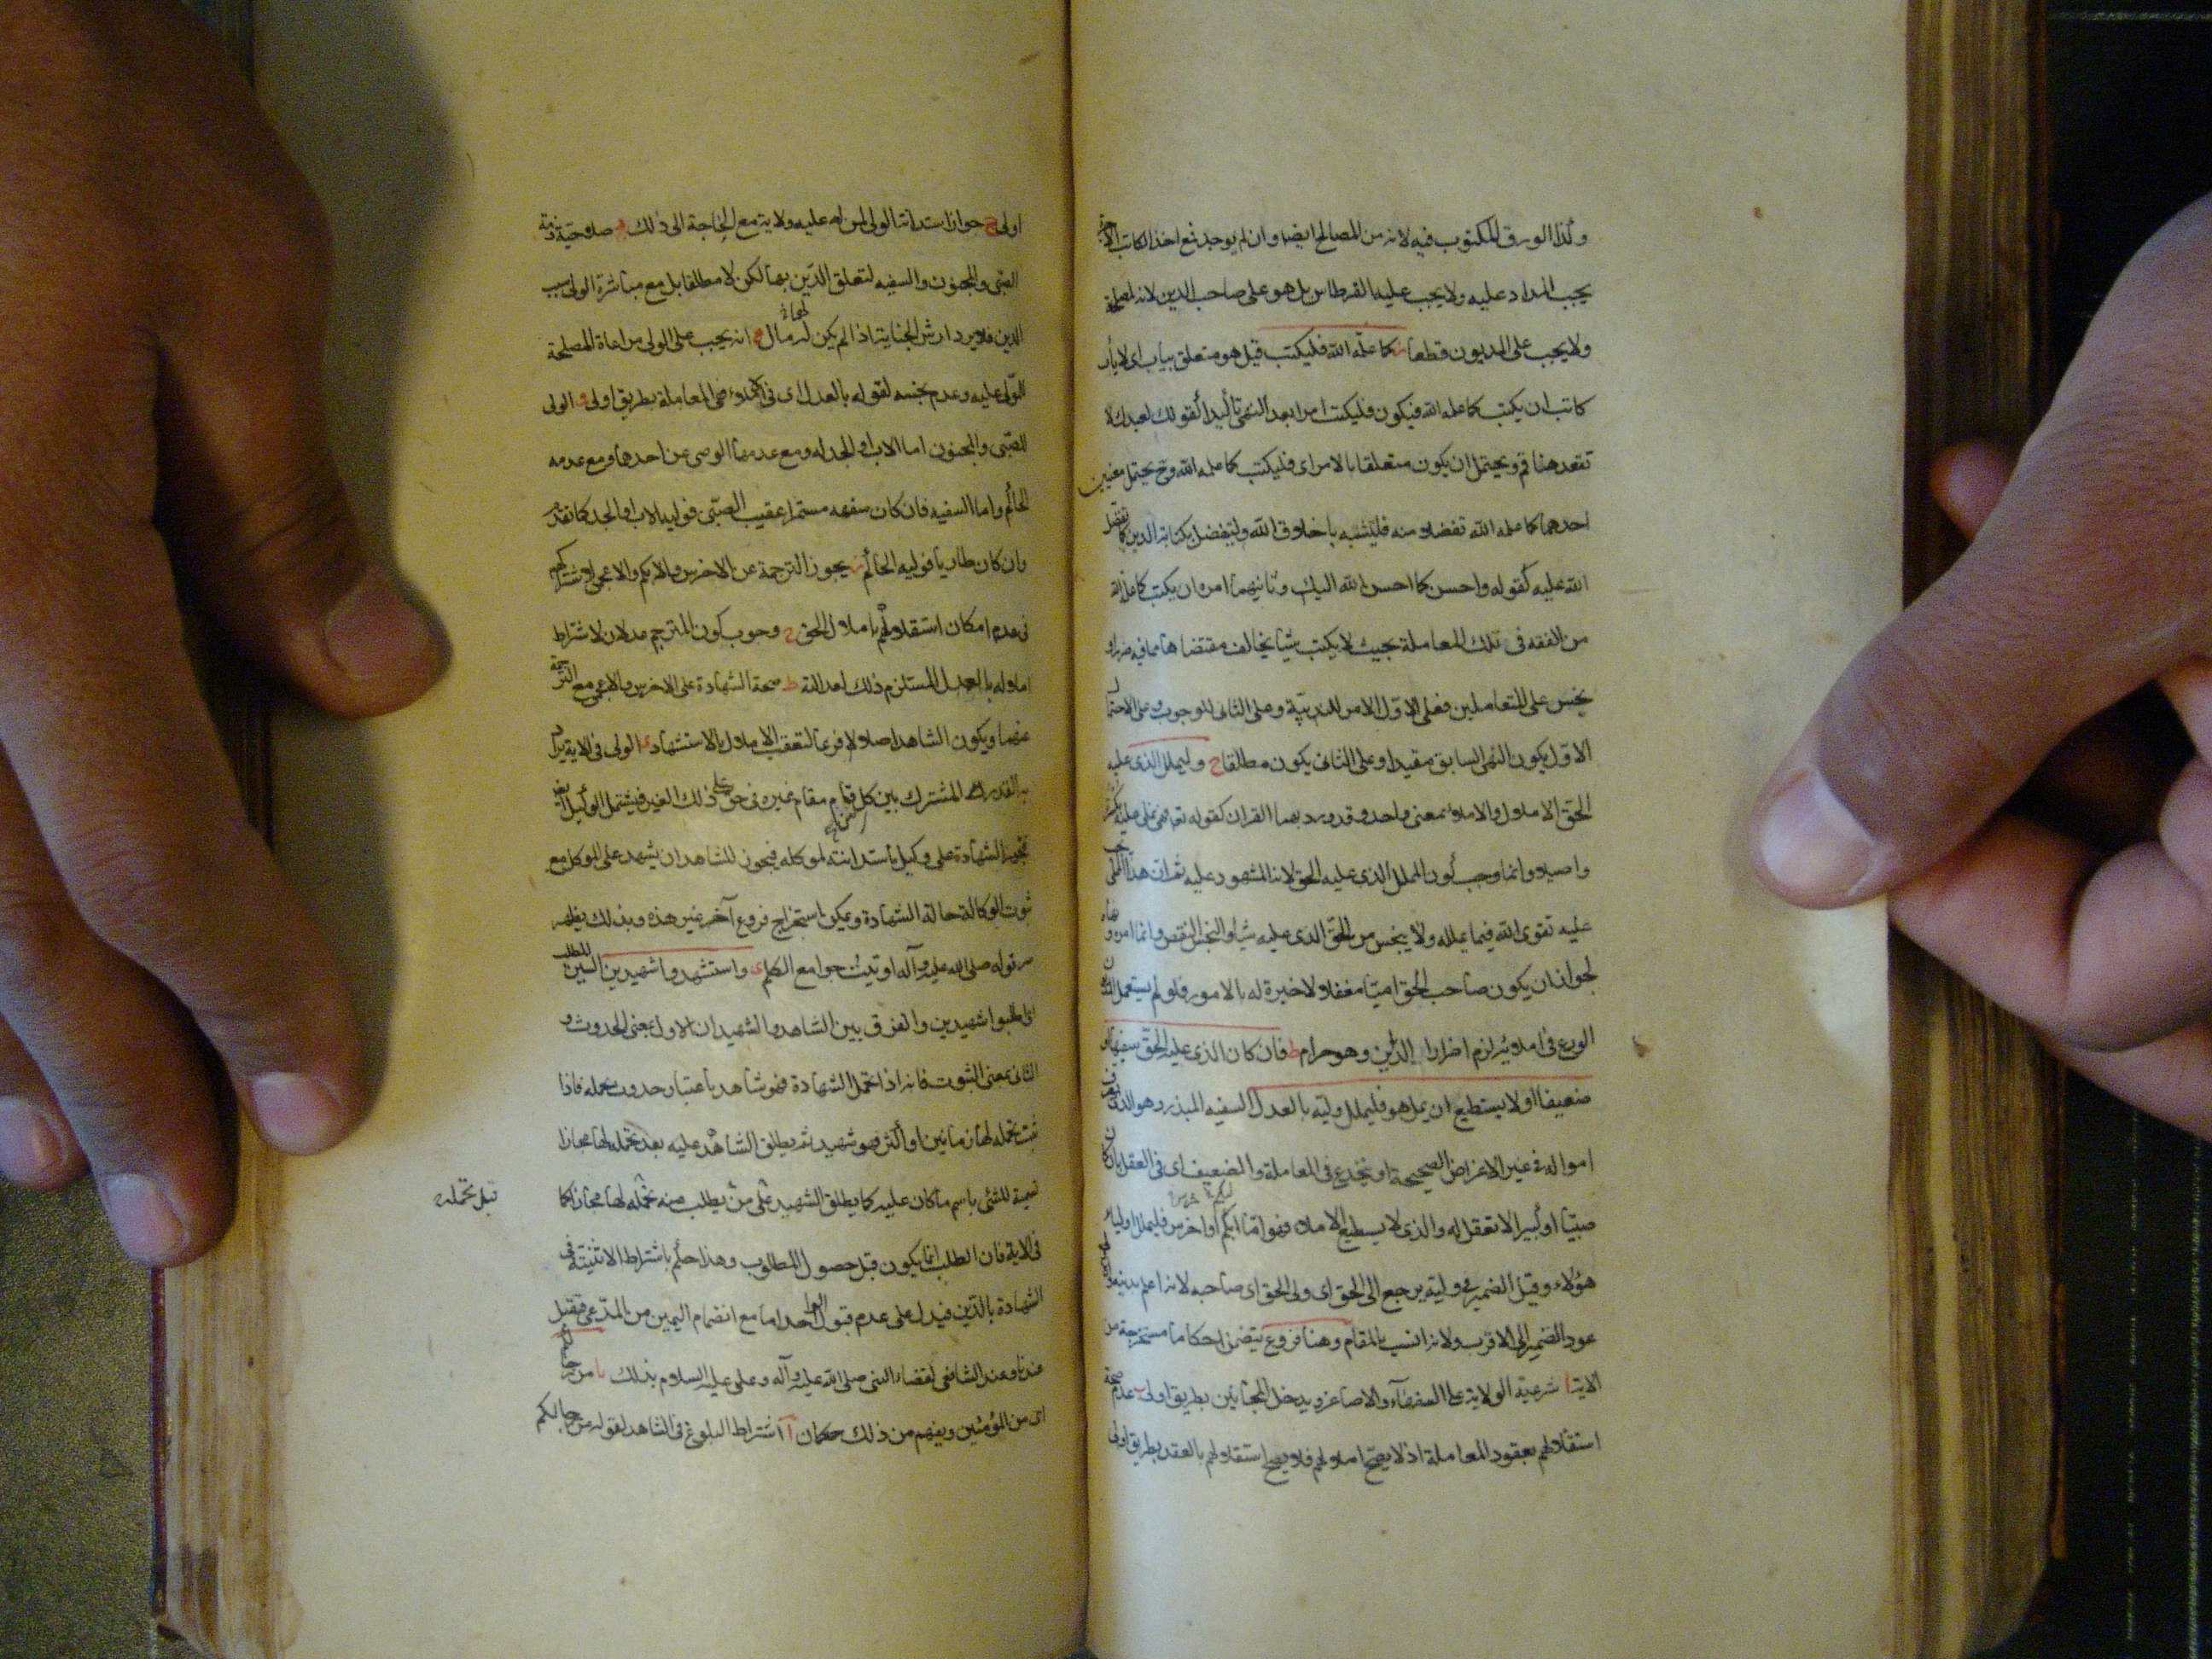 وكذا الورق المكتوب فيه لانه من المصالح ايضا وان لم يوجد فمع اخذ الكاتب الاجرة
يجب المداد عليه ولا يجب عليه القرطاس بل هو على صاحب الدين لانه لمصلحة
ولا يجب على المديون قطعا ز كما علمه الله فليكتب قيل هو متعلق بياب اى لا ياب
كاتب ان يكتب كما علمه الله فيكون فليكتب امرا بعد النهى تاكيدا كقولك لعبدك لا
تقعد هنا قم ويحتمل ان يكون متعلقا بالامر اى فليكتب كما علمه الله وح يحتمل معنيين
احدهما كما علمه الله تفضلا منه فليتشبه باخلاق الله وليتفضل بكتابة الدين كما تفضل
الله عليه كقوله واحسن كما احسن الله اليك وثانيهما امره ان يكتب كما علمه الله
من الفقه فى تلك المعاملة بحيث لا يكتب شيئا يخالف مقتضاها مما فيه ضرر او
بخس على المتعاملين فعلى الاول الامر للندبية وعلى الثانى للوجوب وعلى الاحتمال
الاول يكون النهى السابق مقيدا وعلى الثانى يكون مطلقا ح وليملل الذى عليه
الحق الاملال والاملاء بمعنى واحد وقد ورد بهما القران كقوله تع فهى تملى عليه بكرة
واصيلا وانما وجب كون المملل الذى عليه الحق لانه المشهود عليه ثم ان هذا المملى يجب
عليه تقوى الله فيما يمله ولا يبخس من الحق الذى عليه شيئا والبخس النقص وانما امره بهما
لجواز ان يكون صاحب الحق اميا مغفلا لا خبرة له بالامور فلو لم يستعمل المديون
الورع فى املائه لزم اضرار الدائن وهو حرام ط فان كان الذى عليه الحق سفيها او
ضعيفا او لا يستطيع ان يمل هو فليملل وليه بالعدل السفيه المبذر وهو الذى يصرف
امواله فى غير الاغراض الصحيحة او ينخدع فى المعاملة والضعيف اى فى العقل بان كان
صبيا او كبيرا لا تعقل له والذى لا يستطيع الاملاء فهو اما ابكم او اخرس فليملل اولياء
هؤلاء وقيل الضمير فى وليه يرجع الى الحق اى ولى الحق اى صاحبه لانه اعلم بدينه
عود الضمير الى الاقرب ولانه انسب بالمقام وهنا فروع يتضمن احكاما مستخرجة من
الاية ا شرعية الولاية على السفهاء والاصاغر ويدخل المجانين بطريق اولى ب عدم صحة
استقلالهم بعقود المعاملة اذ لا يصح املاؤهم فلا يصح استقلالهم بالعقد بطريق اولى
اولى ج جواز استدانة الولى لمن له عليه ولاية مع الحاجة الى ذلك د صلاحية ذمة
الصبى والمجنون والسفيه لتعلق الدين بها لكن لا مطلقا بل مع مباشرة الولى سبب
الدين فلا يرد ارش الجناية اذا لم يكن لهما مال ه انه يجب على الولى مراعاة المصلحة
للمولى عليه وعدم بخسه لقوله بالعدل اى فى الاملاء ففى المعاملة بطريق اولى و الولى
للصبى والمجنون اما الاب او الجد له ومع عدمهما الوصى عن احدهما ومع عدمه
الحاكم واما السفيه فان كان سفهه مستمرا عقيب الصبى فوليه الاب او الجد كما تقدم
وان كان طاريا فوليه الحاكم ز يجوز الترجمة عن الاخرس والابكم والاعجمى لاشتراكهم
فى عدم امكان استقلالهم باملال الحق ح وجوب كون المترجم عدلا لاشتراط
املاله بالعدل المستلزم ذلك لعدالته ط صحة الشهادة على الاخرس والاعجمى مع الترجمة
عنهما ويكون الشاهد اصلا لا فرعا لتعقب الاملال بالاستشهاد ى الولى فى الاية يراد
به القدر المشترك بين كل قائم مقام غيره فى حق على ذلك الغير فيشتمل الوكيل ايضا
فتجوز الشهادة على وكيل باستدانته لموكله فيجوز للشاهد ان يشهد على الموكل مع
ثبوت الوكالة حالة الشهادة ويمكن استخراج فروع آخر غير هذه وبذلك يظهر
سر قوله صلى الله عليه وآله اوتيت جوامع الكلم ى واستشهدوا شهيدين السين للطلب
اى اطلبوا شهيدين والفرق بين الشاهد والشهيد ان الاول بمعنى الحدوث و
الثانى بمعنى الثبوت فانه اذا تحمل الشهادة فهو شاهد باعتبار حدوث تحمله فاذا
ثبت تحمله لها زمانين او اكثر فهو شهيد ثم يطلق الشاهد عليه بعد تحمله لها مجازا
تسمية للشئ باسم ما كان عليه كما يطلق الشهيد على من يطلب منه تحمله لها مجازا كما
قبل تحمله
فى الاية فان الطلب انما يكون قبل حصول المطلوب وهذا حكم باشتراط الاثنينية فى
الشهادة بالدين فيدل على عدم قبول الواحد اما مع انضمام اليمين من المدعى فتقبل
عندنا وعند الشافعى لقضاء النبى صلى الله عليه وآله وعلى عليه السلام بذلك يا من رجالكم
اى من المؤمنين ويفهم من ذلك حكمان ا اشتراط البلوغ فى الشاهد لقوله من رجالكم